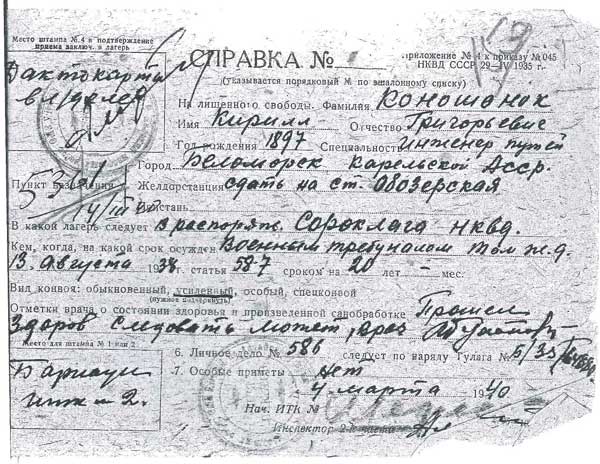 Место штампа № 4 в подтверждение
приема заключ. в лагерь
19
СПРАВКА №
приложение № 4 к приказу № 045
НКВД СССР 29-IV 1935 г.
(указывается порядковый № по эшалонному списку)
Дактокарта
На лишенного свободы. Фамилия Коношонок
Имя Кирилл Отчество Григорьевич
Год рождения 1897 Специальность инженер путей
Город Беломорск Карельской Асср.
Пункт назначения
Желдорстанция сдать на ст. Обозерская
Пристань
В какой лагерь следует в распоряж. Сороклага НКВД.
Кем, когда, на какой срок осужден Военным трибуналом Том ж.д.
13 августа 1938 г. статья 58-7 сроком на 20 лет – мес.
Вид конвоя: обыкновенный, усиленный, особый, спецконвой
(нужное подчеркнуть)
Отметки врача о состоянии здоровья и произведенной санобработке Прошел
Здоров следовать может, врач
Место для штампа № 1 или 2
6. Личное дело № 586 следует по наряду Гулага № 5/33
7. Особые приметы нет
Барнаул
итк № 2.
4 марта 1940
Нач. ИТК №
Инспектор 2-й части